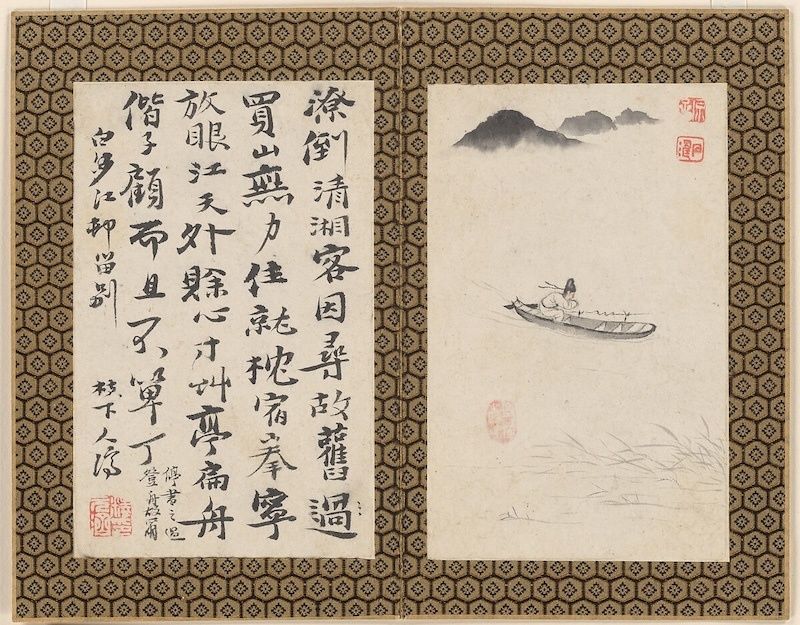 潦倒清湘客因尋故舊過
買山無力住就枕宿峯寧
放眼江天外賒心寸艸亭扁舟
偕子顧而且不單丁
白沙江邨留別
枝下人濟